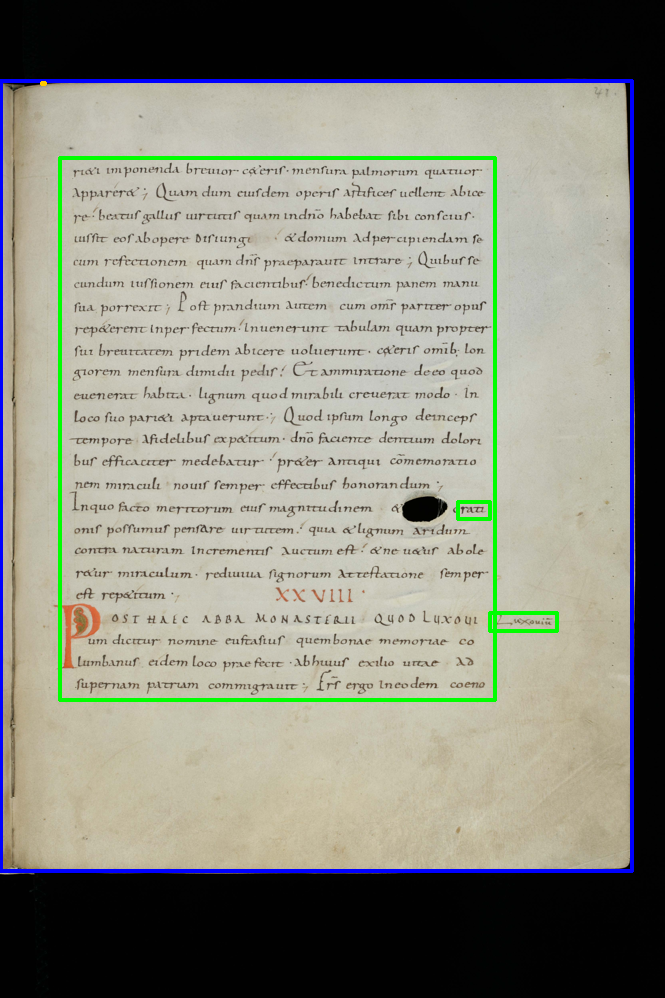 41.
ri&ur imponenda brevior c&eris· mensura palmorum quatuor
apparer&; Quam dum eiusdem operis artifices vellent abice
re· beatus gallus uirtutis quam indño habebat sibi conscius·
iussit eos ab opere disiungi· & domum ad percipiendam se
cum refectionem quam dñs praeparauit intrare; Quibus se
cundum iussionem eius facientibus· benedictum panem manu
sua porrexit; Post prandium autem cum omĩs pariter opus
rep&erent inperfectum· Inuenerunt tabulam quam propter
sui breuitatem pridem abicere uoluerunt· c&eris omĩb; lon
giorem mensura dimidii pedis! Et ammiratione de eo quod
euenerat habita· lignum quod mirabili creuerat modo· In
loco suo pari&i aptauerunt·; Quod ipsum longo deinceps
tempore a fidelibus exp&itum· dño faciente dentium dolori
bus efficaciter medebatur· pr&er antiqui cõmemoratio
nem miraculi nouis semper effectibus honorandum;
Inquo facto meritorum eius magnitudinem & orati
onis possumus pensare uirtutem· quia & lignum aridum
contra naturam Incrementis auctum est· & ne u&us abole
r&ur miraculum· rediuiua signorum attestatione semper
est rep&itum·
XXVIII·
POST HAEC ABBA MONASTERII QUOD LUXOUI
Luxouiũ
um dicitur nomine eustasius quem bonae memoriae co
lumbanus eidem loco praefecit· ab huius exilio uitae ad
supernam patriam commigrauit; Frs ergo In eodem coeno